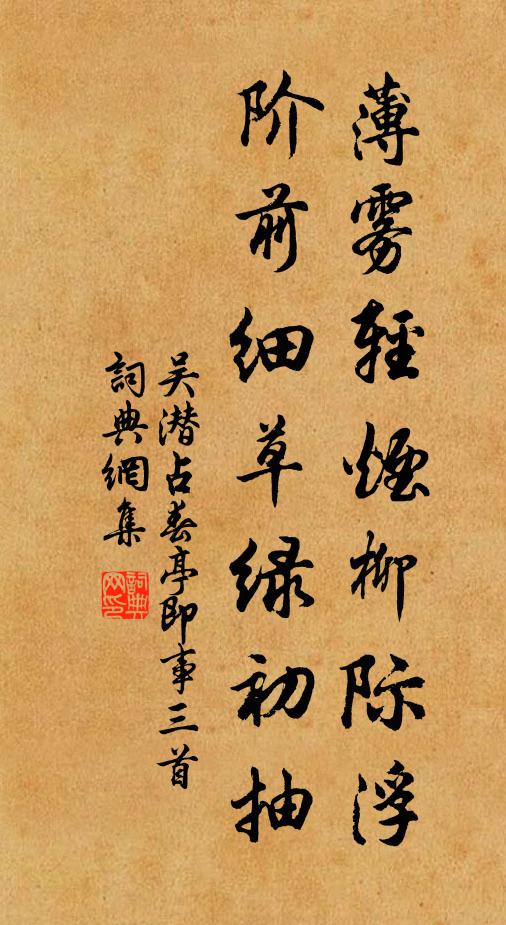 薄雾轻煙柳际浮
阶前细草绿初抽
吴潜占春亭即事三首
詞典網集
詞典网印